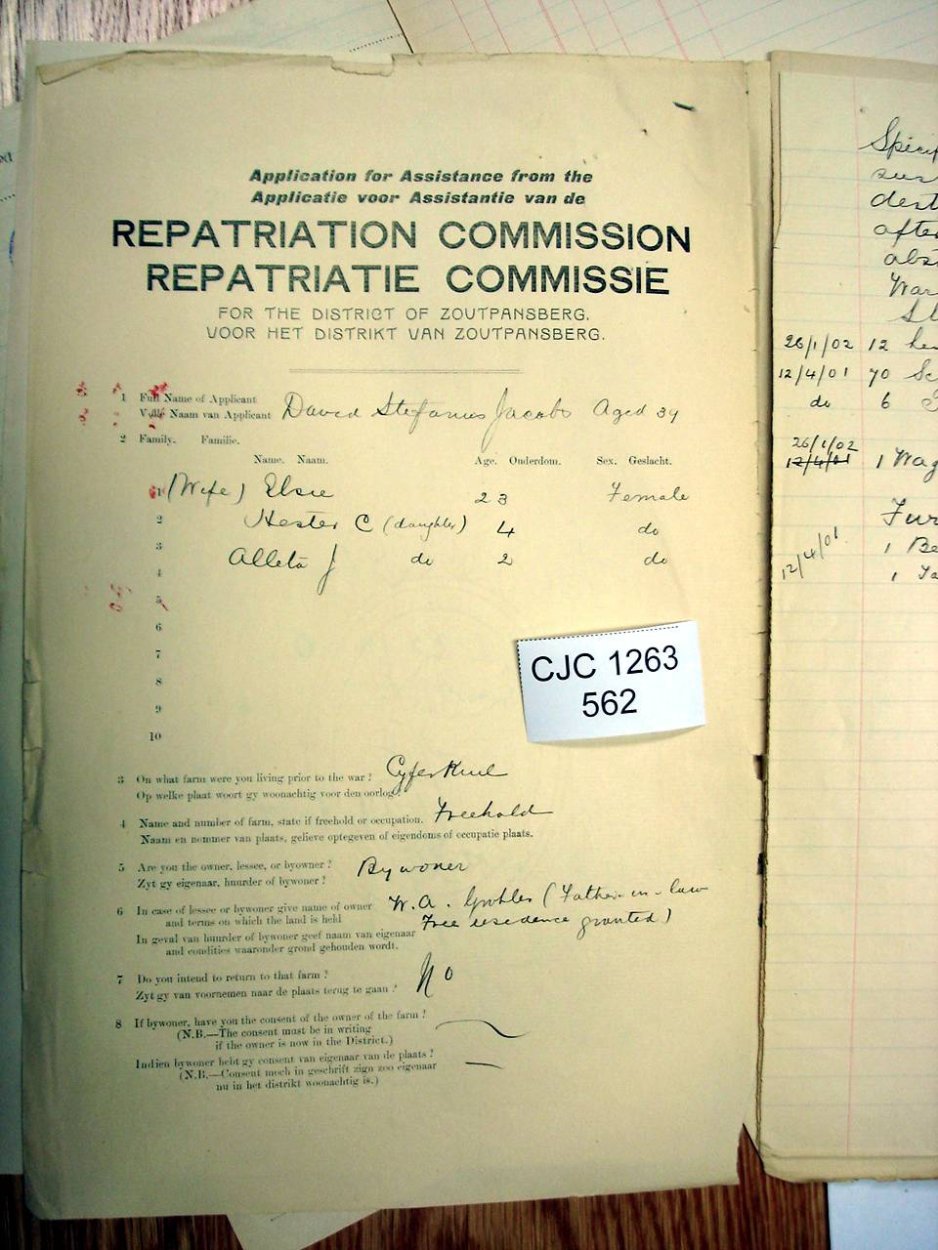 Application for Assistance from the
Applicatie voor Assistantie van de
REPATRIATION COMMISSION
REPATRIATIE COMMISSIE
FOR THE DISTRICT OF ZOUTPANSBERG.
VOOR HET DISTRIKT VAN ZOUTPANSBERG.
1 Full Name of Applicant
Volle Naam van Applicant David Stefanus Jacobs Aged 39
2 Family. Familie.
Name. Naam. Age. Onderdom. Sex. Geslacht.
1 (Wife) Elsie 23 Female
2 Hester C (daughter) 4 do
3 Alleta J do 2 do
4
5
6
7
8
9
10
CJC 1263
562
3 On what farm were you living prior to the war? Cyferkuil
Op welke plaat woort gy woonachtig voor den oorlog?
4 Name and number of farm, state if freehold or occupation. Freehold
Naam en nommer van plaats, gelieve optegeven of eigendoms of occupatie plaats.
5 Are you the owner, lessee, or byowner? Bywoner
Zyt gy eigenaar, huurder of bywoner?
6 In case of lessee or bywoner give name of owner W. A. Grobler (Father-in-law
and terms on which the land is held Free residence granted)
In geval van huurder of bywoner geef naam van eigenaar
and condities waaronder grond gehouden wordt.
7 Do you intend to return to that farm? No
Zyt gy van voornemen naar de plaats terug te gaan?
8 If bywoner, have you the consent of the owner of the farm?
(N.B.—The consent must be in writing
if the owner is now in the District.)
Indien bywoner hebt gy consent van eigenaar van de plaats?
(N.B.—Consent moch in geschrift zign zoo eigenaar
nu in het distrikt woonachtig is.)
Specif
sus
dest
afte
abs
War
26/1/02 12
12/4/01 70 Sc
do 6
26/1/02
12/4/01 1 Wag
Fur
12/4/01 1 Be
1 Ta